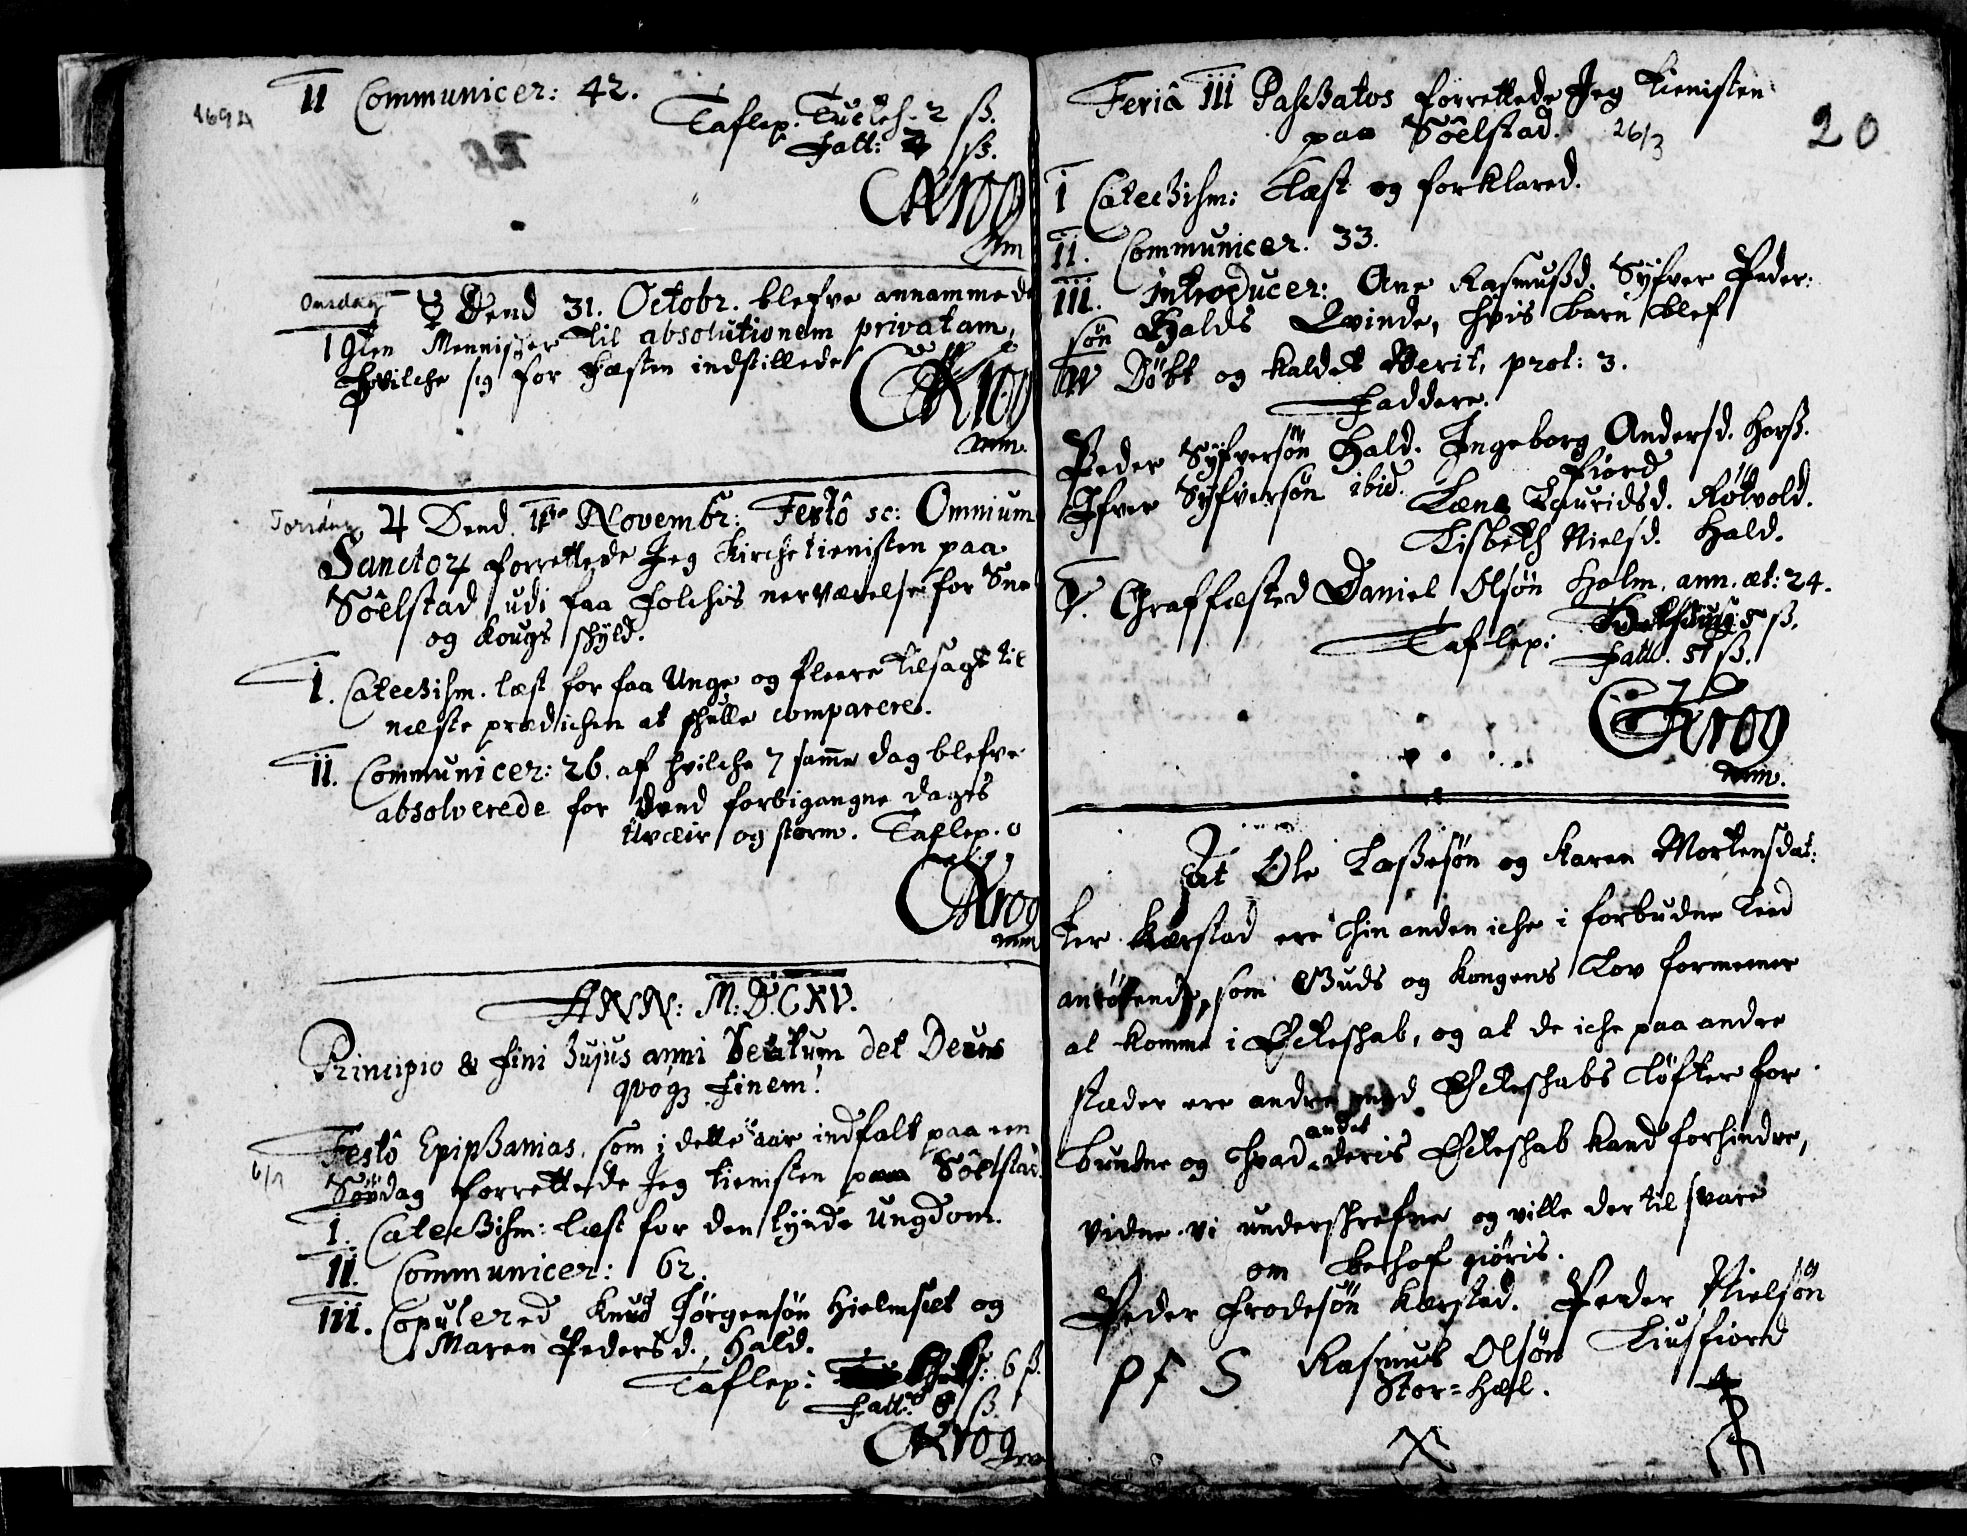 1694
II Communicer: 42.
Taflep. Tuctch. 2 ß.
Fatt: 2 ß.
CKrog
mm
Onsdag ☿ Dend 31. Octobr. blefve annammede
19ten Mennisker til absolutionem privatam,
hvilche sig for Fæsten indstillede
CKrog
mm.
Torsdag ♃ Dend 1ste Novembr: Festô sc: Omnium
Sanctor forrettede Jeg Kirchetienisten paa
Sôelstad udi faa Folchis nerværelse for Sne
og kougs skyld.
I. Catechism. læst for faa Unge og fleere tilsagt til
neste prædichen at skulle comparere.
II. Communicer: 26. af hvilche 7 samme dag blefve
absolverede for dend forbigangne dages
Uvæir og storm. Taflep. 0
CKrog
mm
ANN: M.DCXV.
Principio & fini hujus anni lætum det Deus
qvoq; Finem!
Festô Epiphanias, som i dette aar indfalt paa en
6/1 Søndag forrettede Jeg tienisten paa Sôelstad.
I. Catechism: læst for den tynde Ungdom.
II. Communicer: 62.
III. Copulered Knud Jørgensøn Hielmset og
Maren Pedersd. Hald.
Taflep: 6 ß.
Fatt: 8 ß.
CKrog
20
Feriâ III Paschatos forrettede Jeg Tienisten
paa Sôelstad. 26/3
I Catechism: Læst og forklared.
II. Communicer. 33.
III. Introducer: Ane Rasmußd. Syfver Peder:
søn Halds Qvinde, hvis barn blef
IV Døbt og kaldet Berit, prot: 3.
Faddere.
Peder Syfversøn Hald. Ingeborg Andersd. Horß.
fiord
Ifver Syfversøn ibid. Lena Lauridsd. Røtvold.
Lisbeth Nielsd. Hald.
V. Graffæsted Daniel Olsøn Holm. ann. æt: 24.
Taflep: 5 ß.
Fatt. 51 ß.
CKrog
mm.
At Ole Laßesøn og Karen Mortensdat:
ter Kærstad ere hin anden iche i forbudne Leed
anrørende, som Guds og Kongens Lov formeener
at komme i Ecteskab, og at de iche paa andre
stæder ere andre med Ecteskabs Løfter for
andet
bundne og hvad deris Ecteskab kand forhindre,
vidne vi underskrefne og ville der til svare
om behof giøris.
Peder Frodesøn Kærstad. Peder Nielsøn
Liusfiord
PFS Rasmus Olsøn
Stor=Hæl.